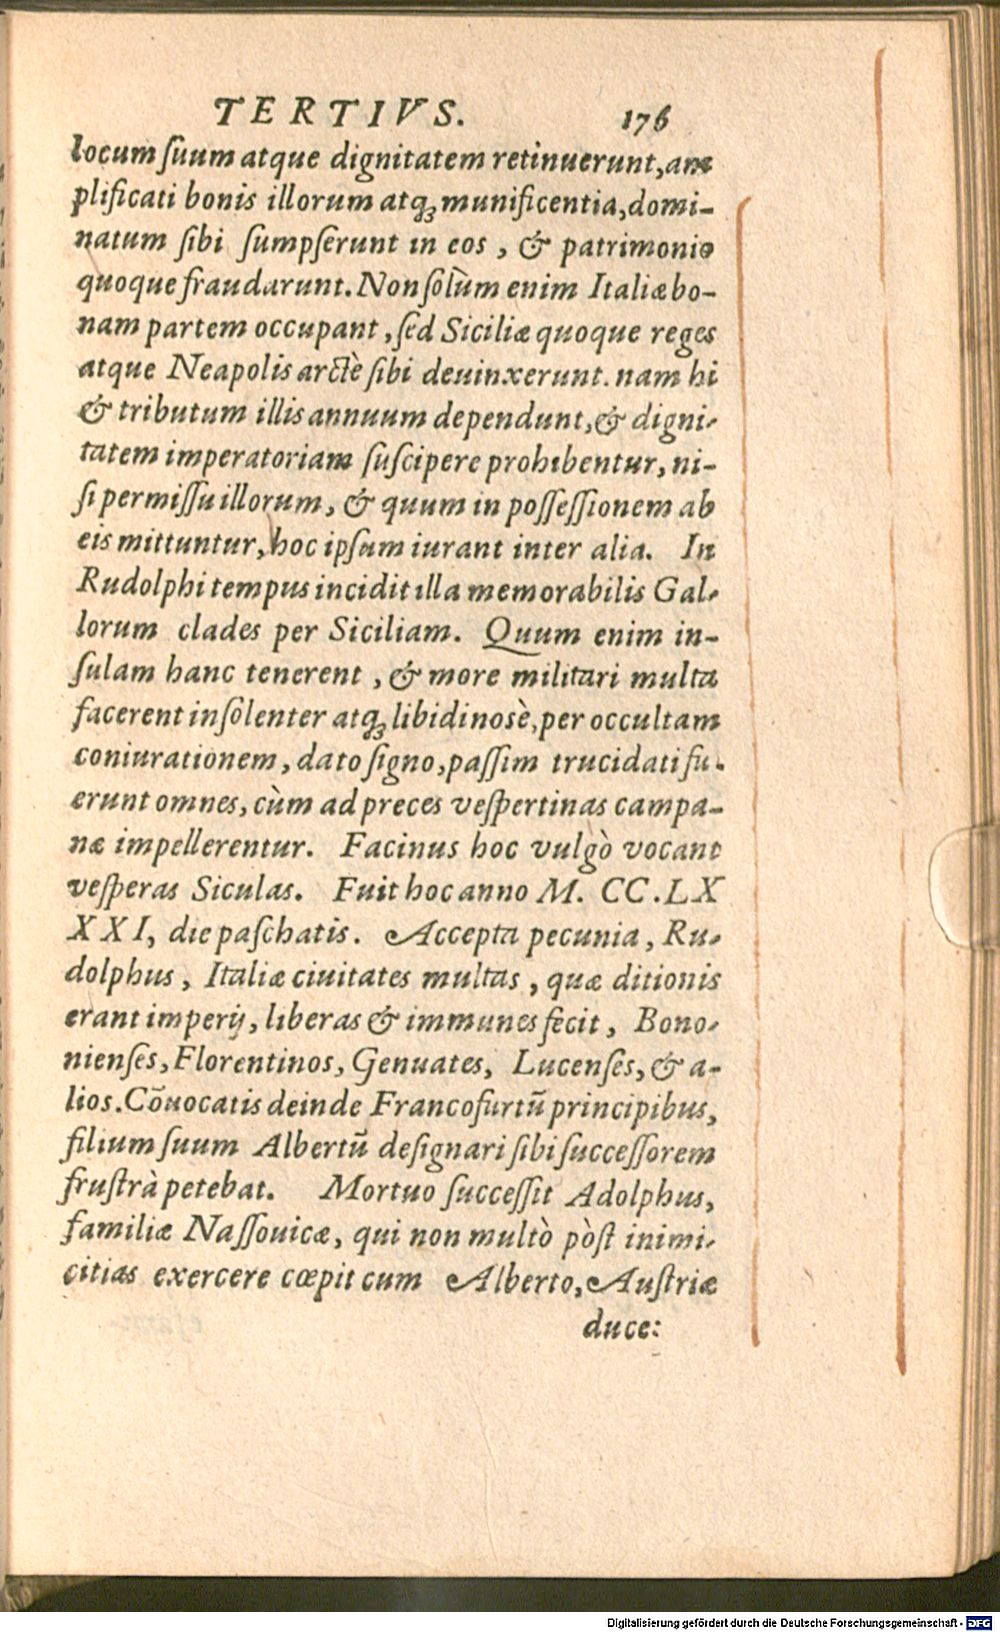 TERTIVS. 176
locum ſuum atque dignitatem retinuerunt, am
plificati bonis illorum atq; munificentia, domi-
natum ſibi ſumpſerunt in eos, & patrimonio
quoque fraudarunt. Non ſolùm enim Italiæ bo-
nam partem occupant, ſed Siciliæ quoque reges
atque Neapolis arctè ſibi deuinxerunt. nam hi
& tributum illis annuum dependunt, & digni-
tatem imperatoriam ſuſcipere prohibentur, ni-
ſi permiſſu illorum, & quum in poſſeſſionem ab
eis mittuntur, hoc ipſum iurant inter alia. In
Rudolphi tempus incidit illa memorabilis Gal-
lorum clades per Siciliam. Quum enim in-
ſulam hanc tenerent, & more militari multa
facerent inſolenter atq; libidinosè, per occultam
coniurationem, dato ſigno, paſſim trucidati fu-
erunt omnes, cùm ad preces veſpertinas campa-
næ impellerentur. Facinus hoc vulgò vocant
veſperas Siculas. Fuit hoc anno M. CC. LX
XXI, die paſchatis. Accepta pecunia, Ru-
dolphus, Italiæ ciuitates multas, quæ ditionis
erant imperij, liberas & immunes fecit, Bono-
nienſes, Florentinos, Genuates, Lucenſes, & a-
lios. Cōuocatis deinde Francofurtū principibus,
filium ſuum Albertū deſignari ſibi ſucceſſorem
fruſtrà petebat. Mortuo ſucceſſit Adolphus,
familiæ Naſſouicæ, qui non multò pòſt inimi-
citias exercere cœpit cum Alberto, Auſtriæ
duce:
Digitalisierung gefördert durch die Deutsche Forschungsgemeinschaft - DFG